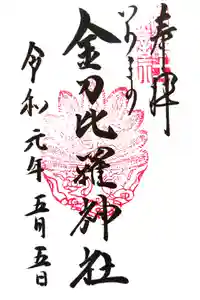 奉拝
いつくまの
金刀比羅神社
令和元年五月五日